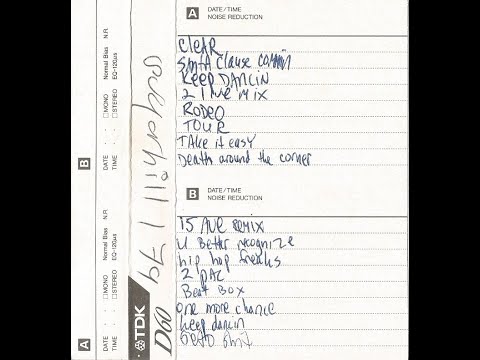 A DATE/TIME
NOISE REDUCTION
CLEAR
SANTA Clause COMMIN
KEEP DANCIN
2 live mix
RODEO
TOUR
TAke it easy
Death around the corner
B DATE/TIME
NOISE REDUCTION
15 AVE REMIX
U Better recognize
hip hop freaks
2 PAC
Beat Box
one more chance
keep dancin
DEAD Shit
B
DATE
TIME
MONO
STEREO
Normal Bias
EQ•120µs
N.R.
A
DATE
TIME
MONO
STEREO
Normal Bias
EQ•120µs
N.R.
179
TDK
D90